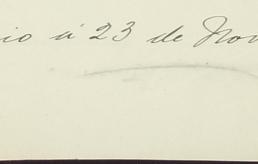 io á 23 de Nov